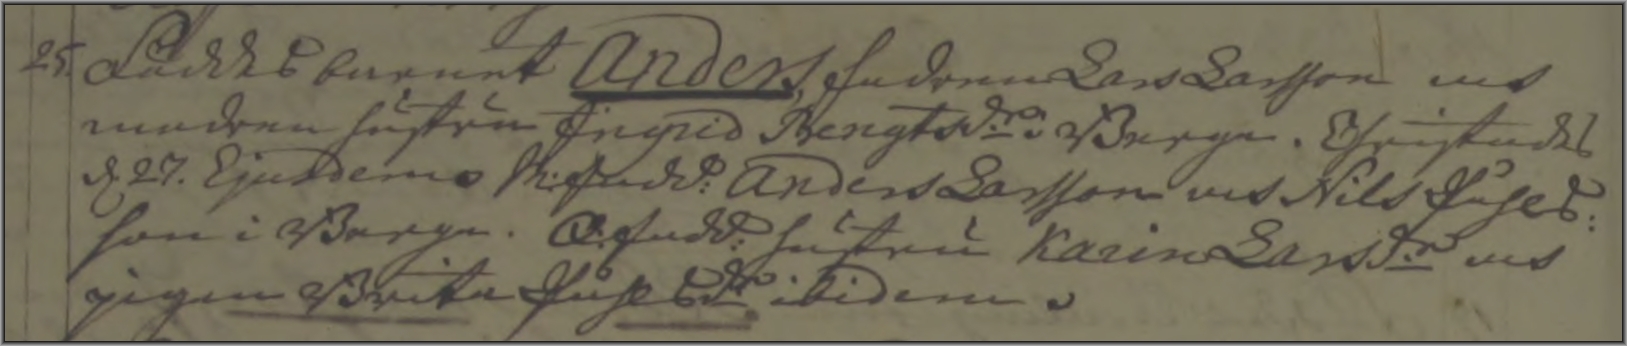 25. Föddes barnet Anders, fadren Lars Larsson och
modren hustru Ingrid Bengtsdr: i Berga. Christnades
d. 27. Ejusdem. M. fadd: Anders Larsson och Nils
son i Berga. Q. fadd: hustru Karin Larsdr och
pigan Brita ibidem.